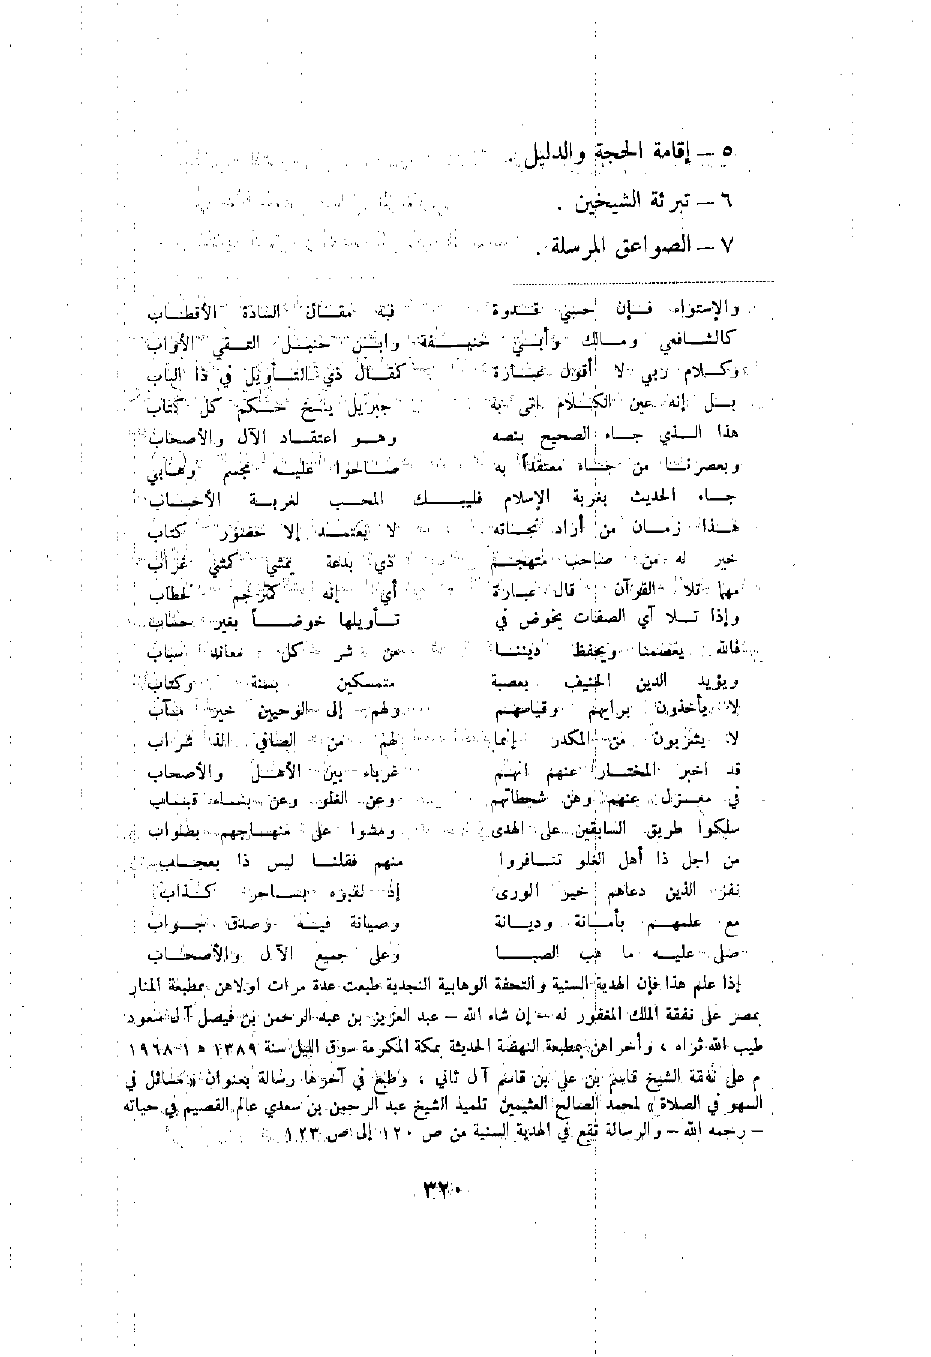 ٥ - إقامة الحجة والدليل
٦ - تبرئة الشيخين .
٧ - الصواعق المرسلة .
والإستواء فإن حسبي قدوة فيه مقال السادة الأقطاب
كالشافعي ومالك وأبي حنيفة وابن حنبل التقي الأواب
وكلام ربي لا أقول عبارة كمقال ذي التأويل في ذا الباب
بل إنه عين الكلام أتى به جبريل ينسخ حكم كل كتاب
هذا الذي جاء الصحيح بنصه وهو اعتقاد الآل والأصحاب
وبعصرنا من جاء معتقداً به صاحوا عليه مجسم وهابي
جاء الحديث بغربة الإسلام فليبك المحب لغربة الأحباب
هذا زمان من أراد نجاته لا يعتمد إلا حضور كتاب
خير له من صاحب متهجم ذي بدعة يمشي كمشي غراب
مهما تلا القرآن قال عبارة أي إنه كمترجم لخطاب
وإذا تلا آي الصفات يخوض في تأويلها خوضاً بغير حساب
فالله يعصمنا ويحفظ ديننا من شر كل معاند سباب
ويؤيد الدين الحنيف بعصبة متمسكين بسنة وكتاب
لا يأخذون برأيهم وقياسهم ولهم إلى الوحيين خير مآب
لا يشربون من المكدر إنما لهم من الصافي الذ شراب
قد اخبر المختار عنهم انهم غرباء بين الأهل والأصحاب
في معزل عنهم وعن شطحاتهم وعن الغلو وعن بناء قباب
سلكوا طريق السابقين على الهدى ومشوا على منهاجهم بصواب
من اجل ذا أهل الغلو تنافروا منهم فقلنا ليس ذا بعجاب
نفر الذين دعاهم خير الورى إذ لقبوه بساحر كذاب
مع علمهم بأمانة وديانة وصيانة فيه وصدق جواب
صلى عليه ما هب الصبا وعلى جميع الآل والأصحاب
إذا علم هذا فإن الهدية السنية والتحفة الوهابية النجدية طبعت عدة مرات اولاهن بمطبعة المنار
بمصر على نفقة الملك المغفور له - إن شاء الله - عبد العزيز بن عبد الرحمن بن فيصل آل سعود
طيب الله ثراه ، وأخراهن بمطبعة النهضة الحديثة بمكة المكرمة سوق الليل سنة ١٣٨٩ ه ١٩٦٨
م على نفقة الشيخ قاسم بن علي بن قاسم آل ثاني ، وطبع في آخرها رسالة بعنوان « مسائل في
السهو في الصلاة » لمحمد الصالح العثيمين تلميذ الشيخ عبد الرحمن بن سعدي عالم القصيم في حياته
- رحمه الله - والرسالة تقع في الهدية السنية من ص ١٢٠ إلى ص ١٢٣
٣٢٠